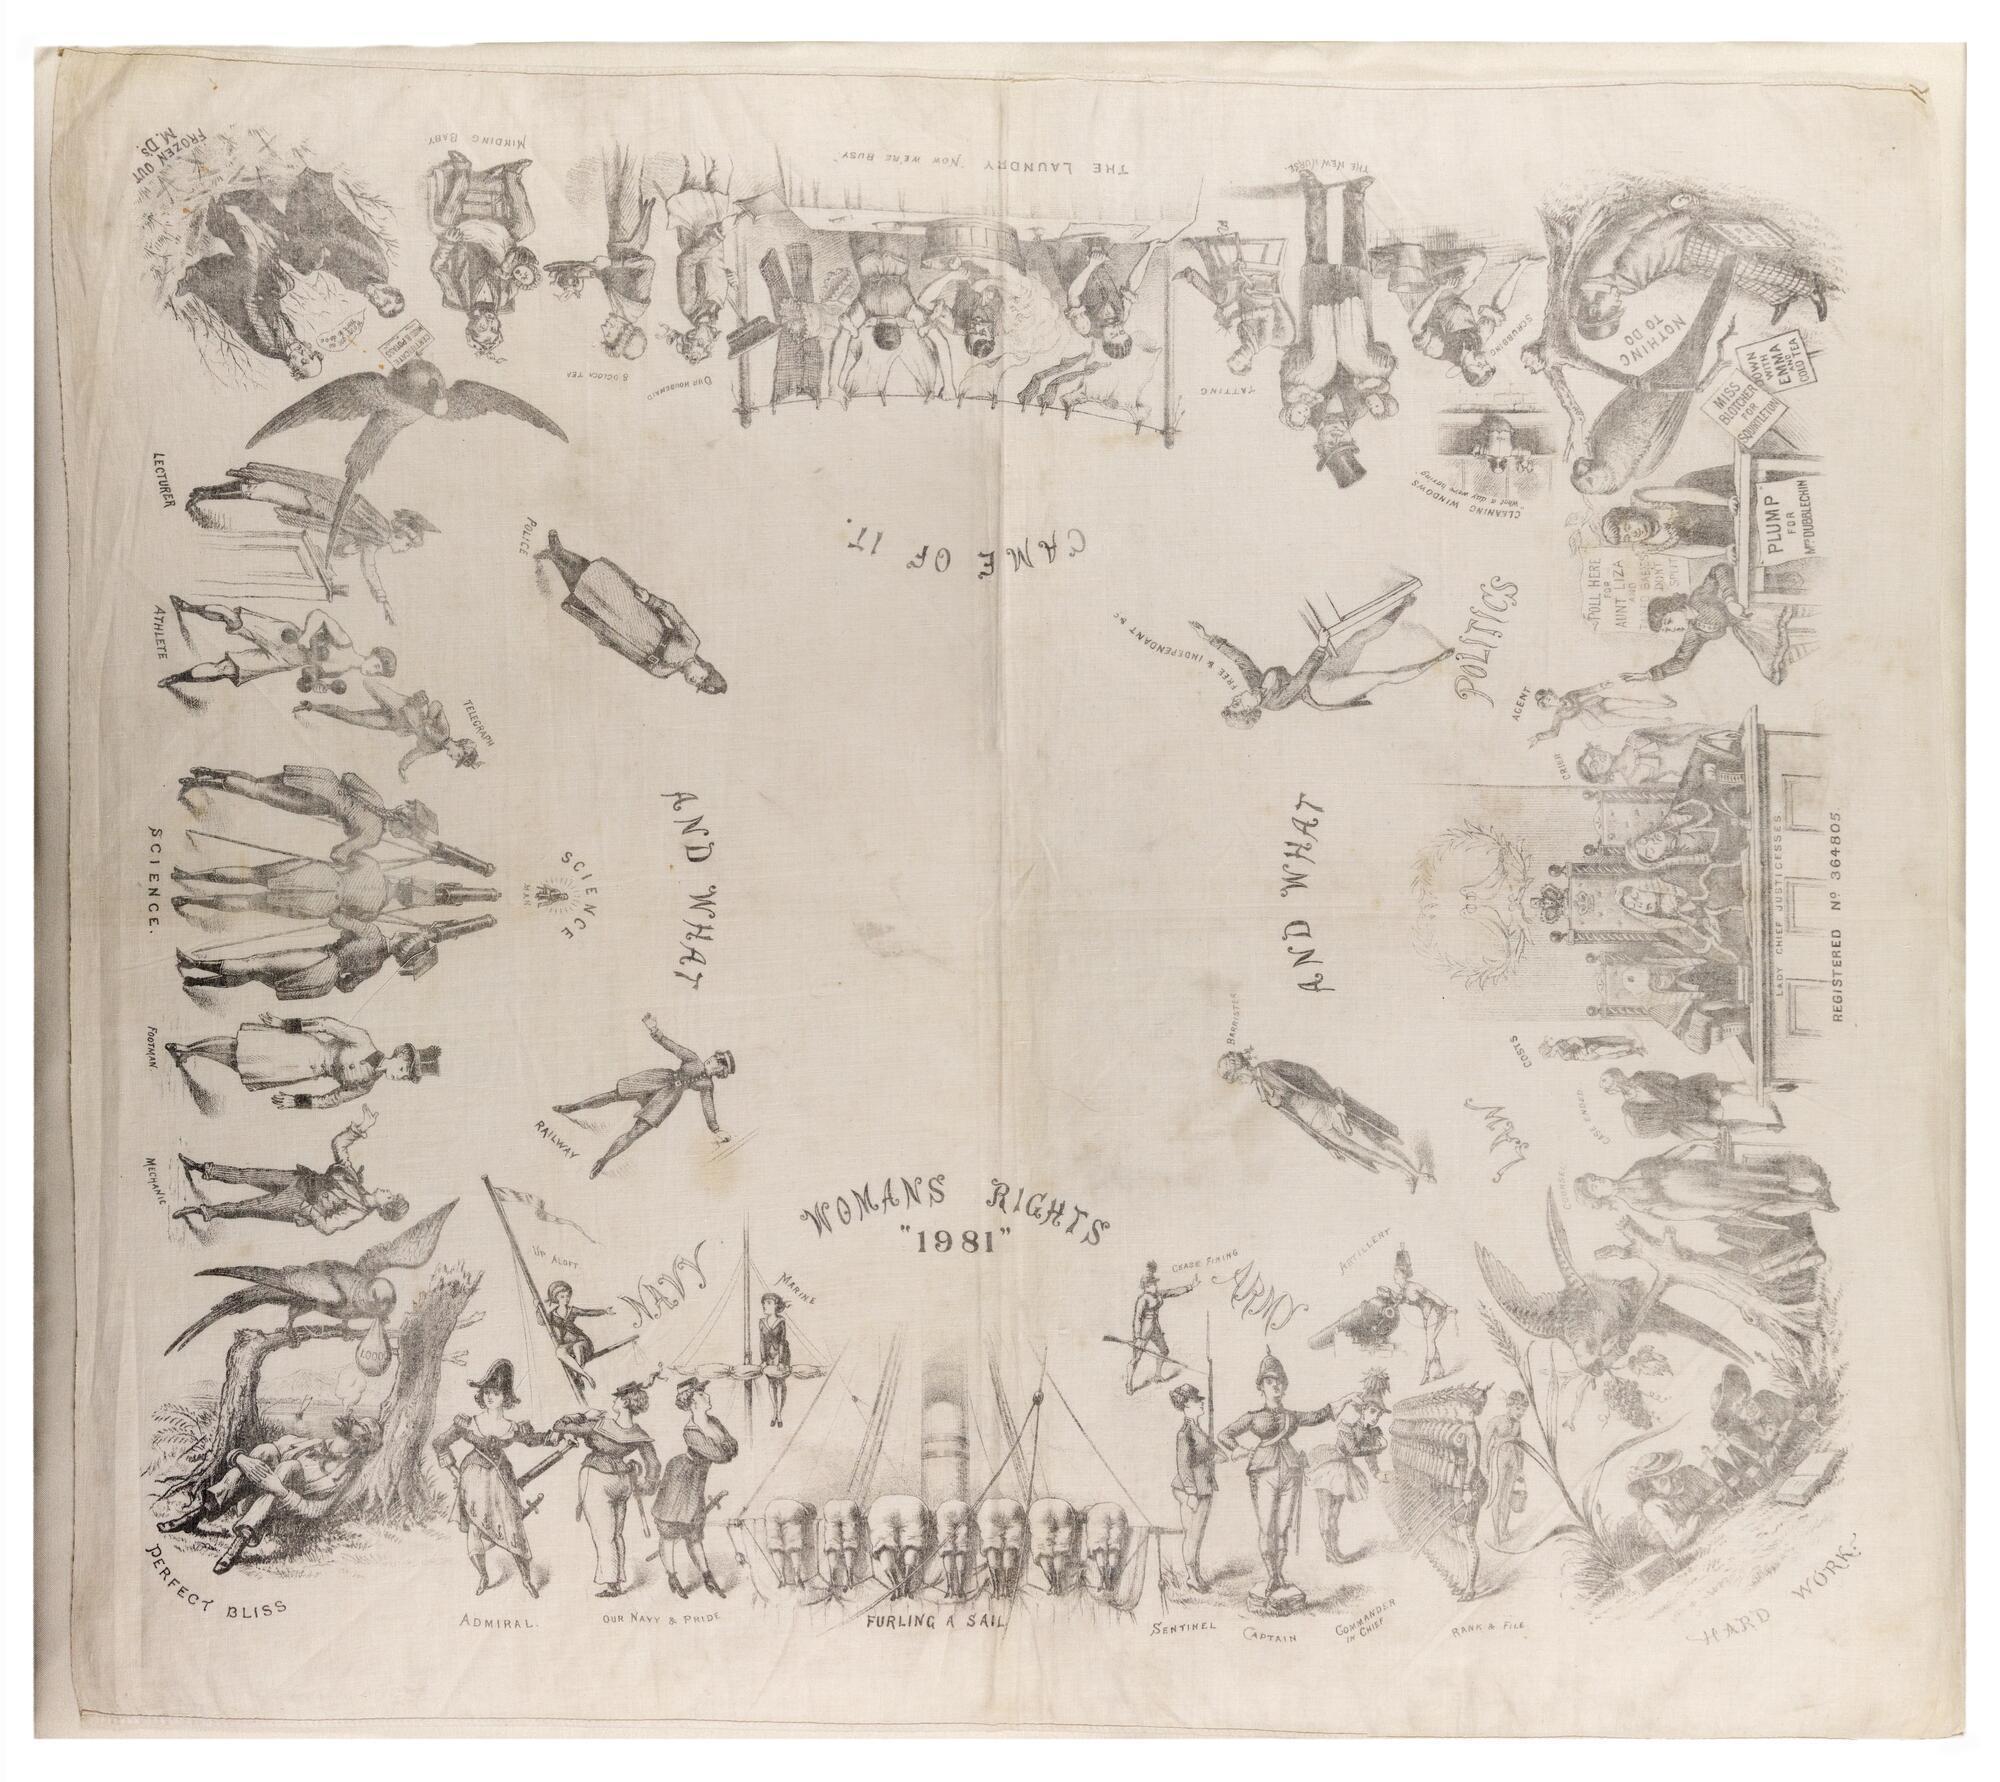 WOMANS RIGHTS
"1981"
AND WHAT
CAME OF IT.
AND WHAT
NAVY
UP ALOFT
MARINE
ADMIRAL.
OUR NAVY & PRIDE
FURLING A SAIL
ARMY
CEASE FIRING
ARTILLERY
SENTINEL
CAPTAIN
COMMANDER
IN CHIEF
RANK & FILE
HARD WORK.
LAW
BARRISTER
COUNSEL
CASE ENDED
COSTS
LADY CHIEF JUSTICESSES
REGISTERED No 364805
CRIER
AGENT
POLITICS
FREE & INDEPENDANT &c
POLL HERE
FOR
AUNT LIZA
AND
DON'T
SPLIT
PLUMP
FOR
MRS DUBBLECHIN
MISS
BLOTCHER
FOR
SQUINTLETON
DOWN
WITH
EMMA
AND
COLD TEA
NOTHING
TO DO
CLEANING WINDOWS
"what a day we're having"
SCRUBBING
THE NEW NURSE
TATTING
THE LAUNDRY "NOW WE'RE BUSY"
OUR HOUSEMAID
8 O'CLOCK TEA
MINDING BABY
FROZEN OUT
M.D's.
CERTIFICATE
LECTURER
ATHLETE
TELEGRAPH
POLICE
SCIENCE.
SCIENCE
MAN
FOOTMAN
RAILWAY
MECHANIC
1,000
PERFECT BLISS